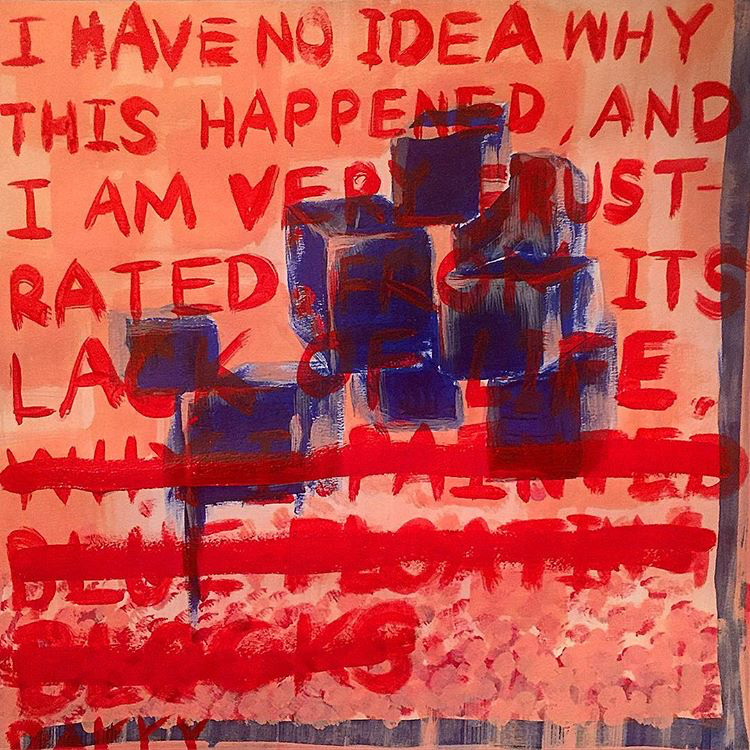 I HAVE NO IDEA WHY
THIS HAPPENED, AND
I AM VERY FRUST-
RATED FROM ITS
LACK OF LIFE,
WHY I PAINTED
BLUE FLOATING
BLOCKS